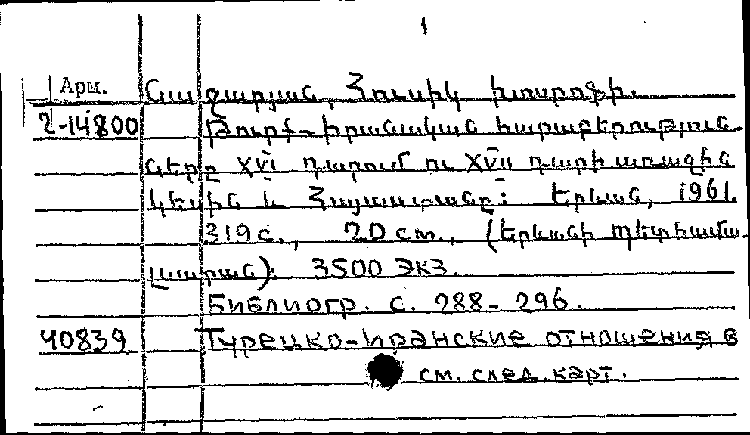 1
Арм. Ղազարյան, Հուսիկ Խոսրովի.
2-14800 Թուրք-իրանական հարաբերություն-
ները XVI դարում ու XVII դարի առաջին
կեսին և Հայաստանը: Երևան, 1961.
319 с., 20 см., (Երևանի պետհամա-
լսարան). 3500 экз.
Библиогр. с. 288-296.
40839 Турецко-иранские отношения в
см. след. карт.